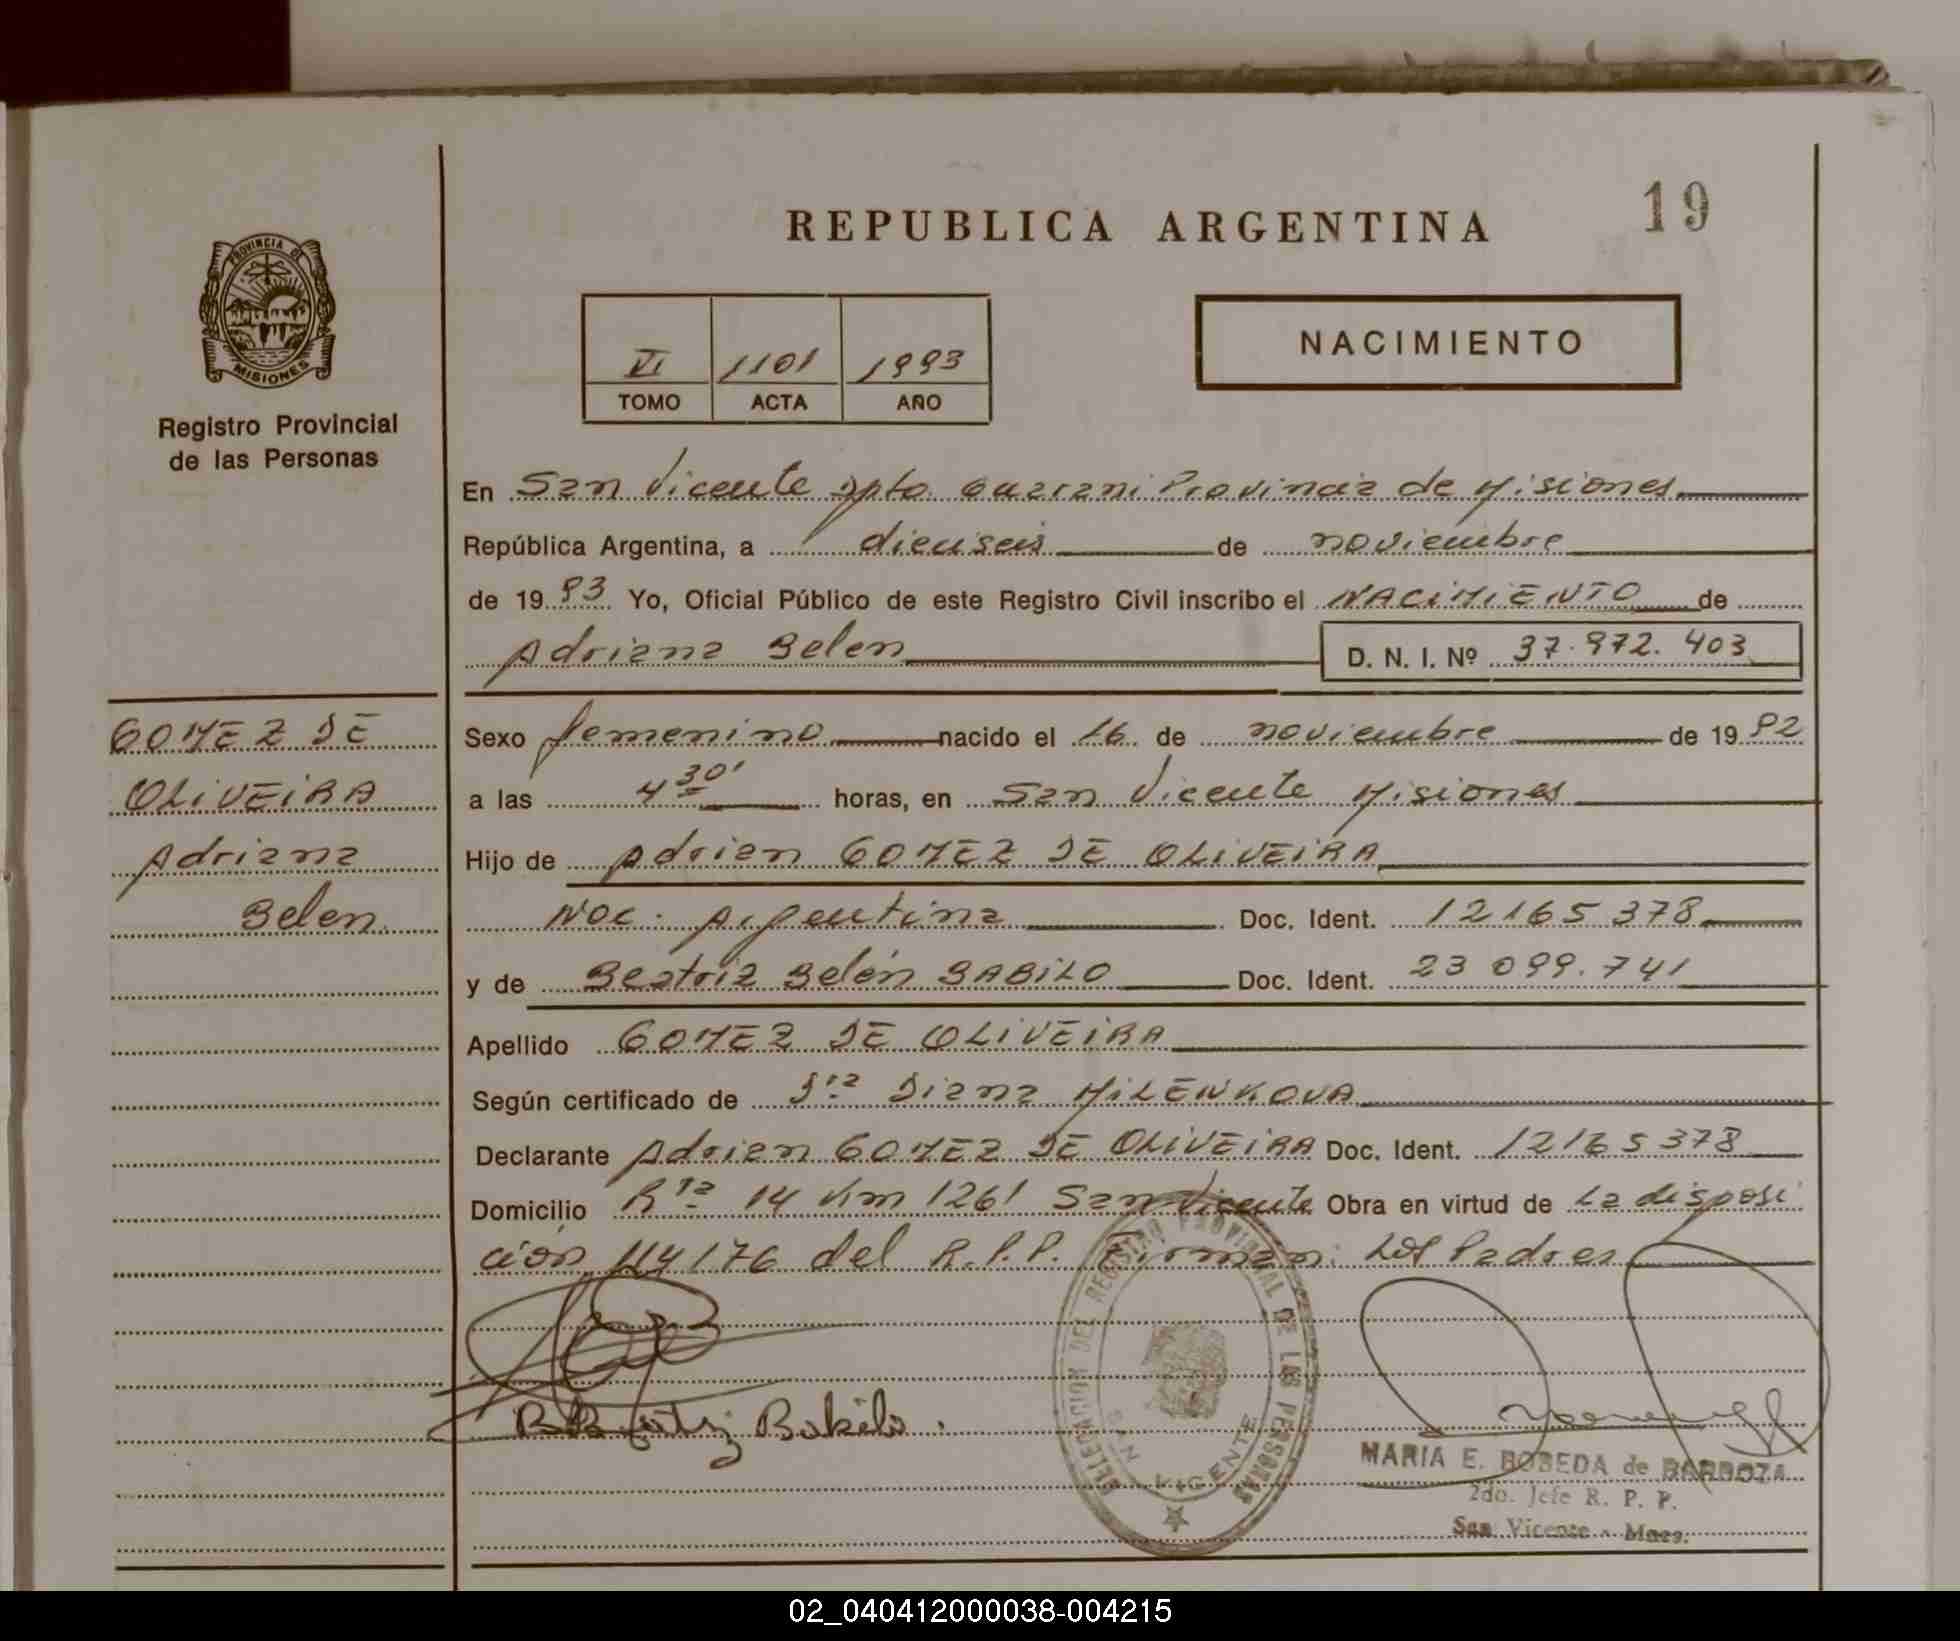 19
REPUBLICA ARGENTINA
PROVINCIA DE
MISIONES
Registro Provincial
de las Personas
VI 1101 1993
TOMO ACTA AÑO
NACIMIENTO
En San Vicente Dpto. Guarani Provincia de Misiones
República Argentina, a dieciseis de noviembre
de 19 93 Yo, Oficial Público de este Registro Civil inscribo el NACIMIENTO de
Adriana Belen D. N. I. Nº 37.972.403
GOMEZ DE
OLIVEIRA
Adriana
Belen.
Sexo femenino nacido el 16 de noviembre de 19 92
a las 4 30' horas, en San Vicente Misiones
Hijo de Adrian GOMEZ DE OLIVEIRA
Nac. Argentina Doc. Ident. 12165378
y de Beatriz Belén BABILO Doc. Ident. 23 099.741
Apellido GOMEZ DE OLIVEIRA
Según certificado de Dra Diana MILENKOVA
Declarante Adrian GOMEZ DE OLIVEIRA Doc. Ident. 12165378
Domicilio Rta 14 Km 1261 San Vicente Obra en virtud de La disposi
ción 114/76 del R.P.P. Firman: Los Padres
DELEGACION DEL REGISTRO PROVINCIAL DE LAS PERSONAS
SAN VICENTE
MARIA E. BOBEDA de BARBOZA
2do. Jefe R. P. P.
San Vicente - Mnes.
02_040412000038-004215